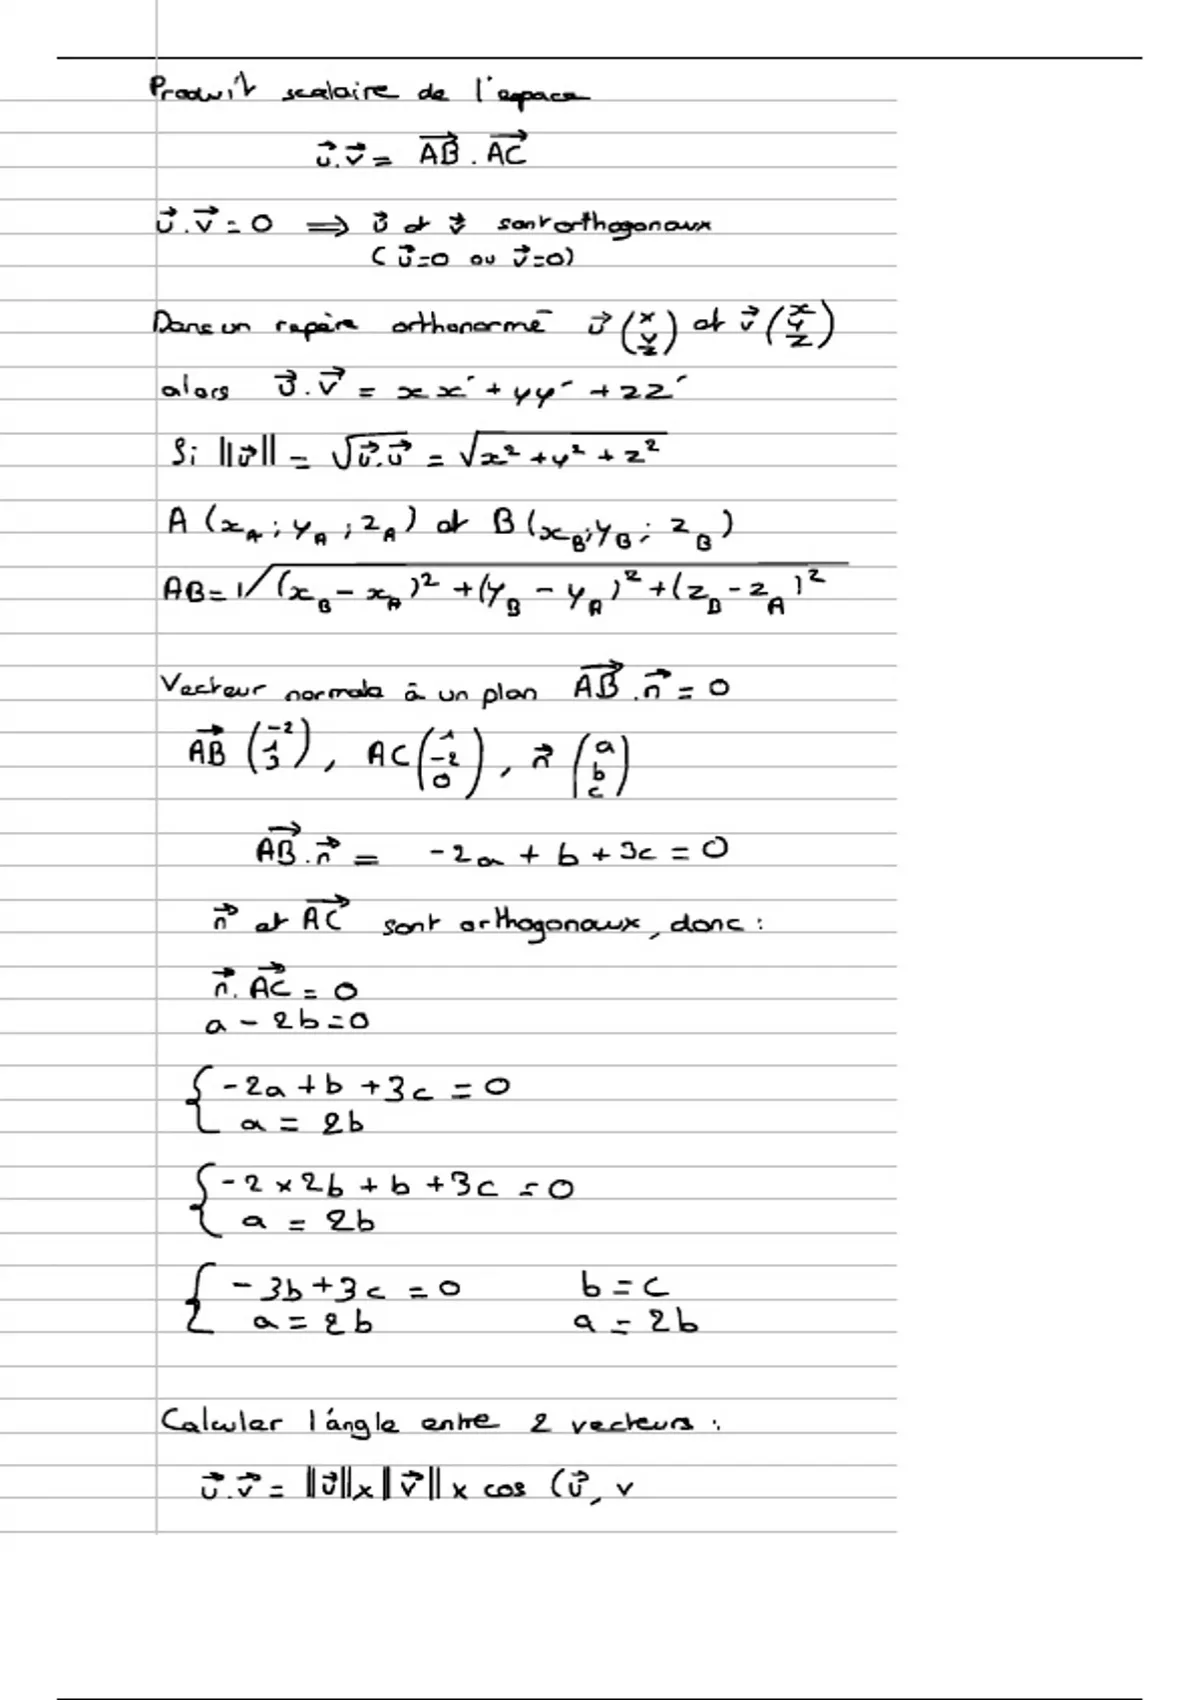 Produit scalaire de l'espace
u⃗.v⃗ = AB⃗ . AC⃗
u⃗.v⃗ = 0 ⟹ u⃗ et v⃗ sont orthogonaux
(u⃗=0 ou v⃗=0)
Dans un repère orthonormé u⃗ (x y z) et v⃗ (x y z)
alors u⃗.v⃗ = xx' + yy' + zz'
Si ||u⃗|| = √u⃗.u⃗ = √x² + y² + z²
A (x_A ; y_A ; z_A) et B (x_B ; y_B ; z_B)
AB = √(x_B - x_A)² + (y_B - y_A)² + (z_B - z_A)²
Vecteur normale à un plan AB⃗ . n⃗ = 0
AB⃗ (-2 1 3), AC (1 -2 0), n⃗ (a b c)
AB⃗ . n⃗ = -2a + b + 3c = 0
n⃗ et AC⃗ sont orthogonaux, donc :
n⃗. AC⃗ = 0
a - 2b = 0
{ -2a + b + 3c = 0
a = 2b
{ -2 × 2b + b + 3c = 0
a = 2b
{ -3b + 3c = 0 b = c
a = 2b a = 2b
Calculer l'angle entre 2 vecteurs :
u⃗.v⃗ = ||u⃗|| x ||v⃗|| x cos (u⃗, v